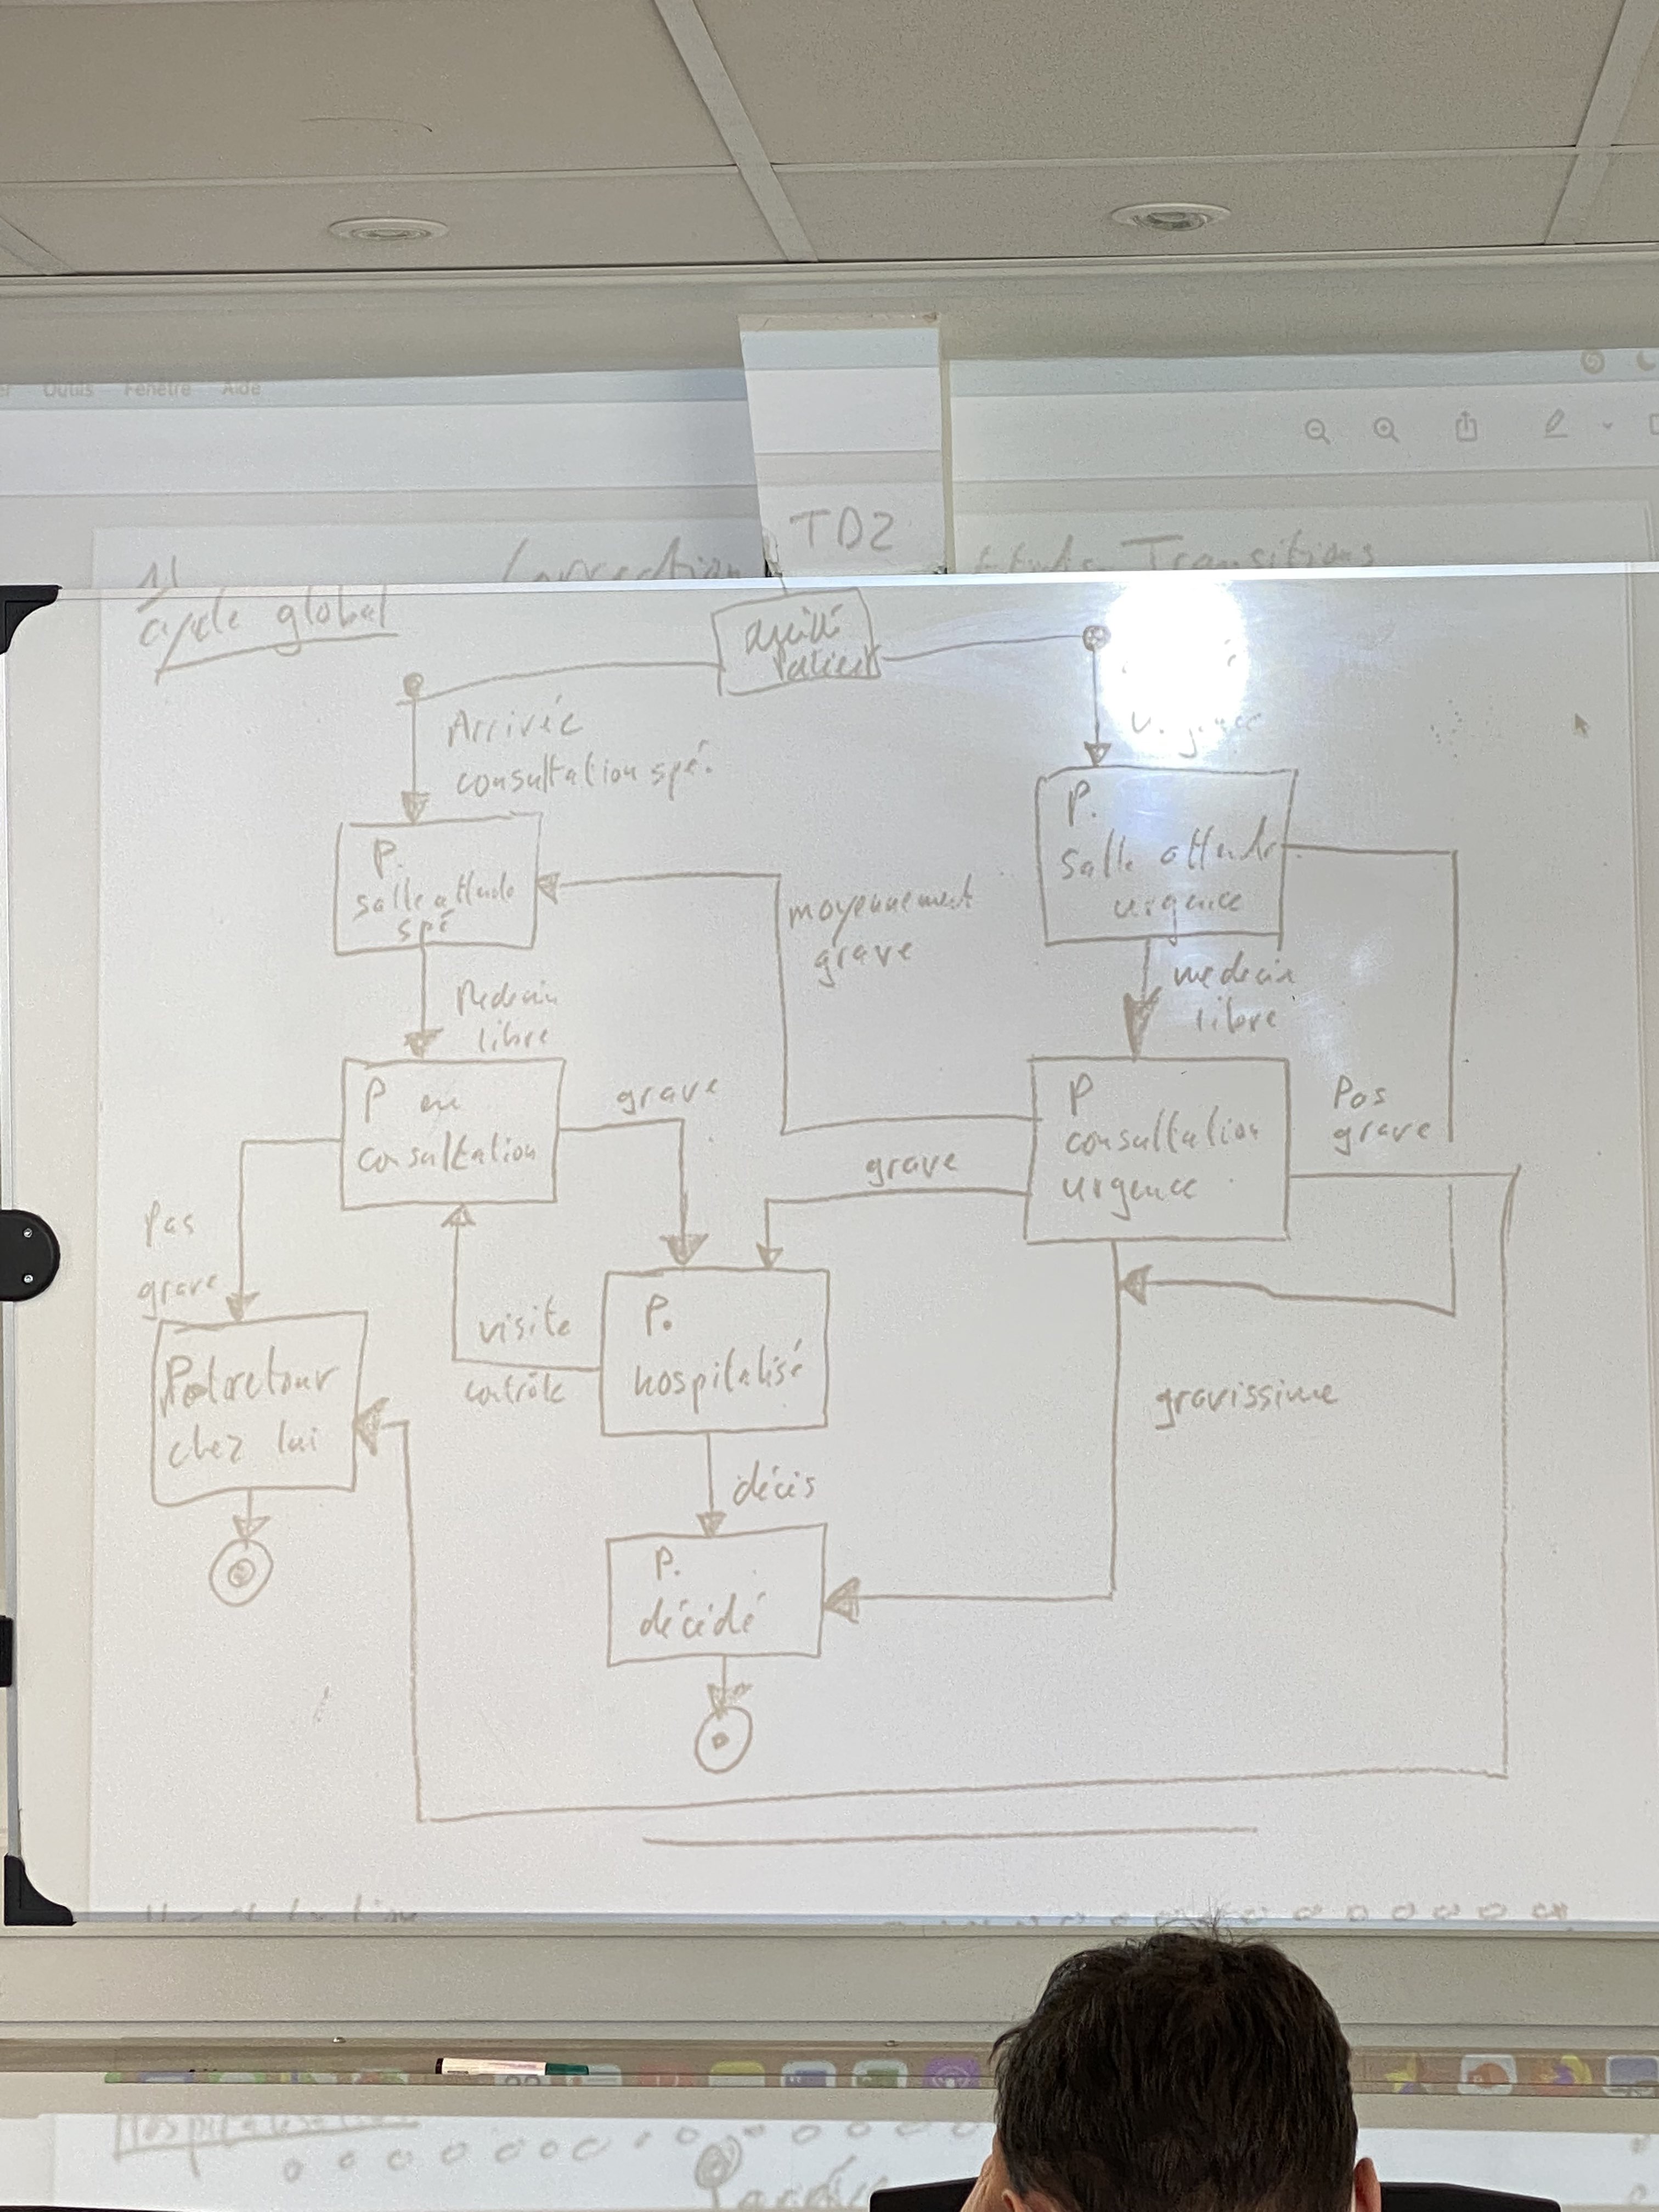 Outils Fenêtre Aide
TD2
Correction
Etats-Transitions
1)
cycle global
Patient
Arrivée
consultation spé.
urgence
P.
salle attende
spé
P.
salle attende
urgence
moyennement
grave
Medecin
libre
medecin
libre
P en
consultation
grave
P
consultation
urgence
Pas
grave
grave
Pas
grave
visite
contrôle
P.
hospitalisé
P retour
chez lui
gravissime
décis
P.
décidé
Hospitalisation